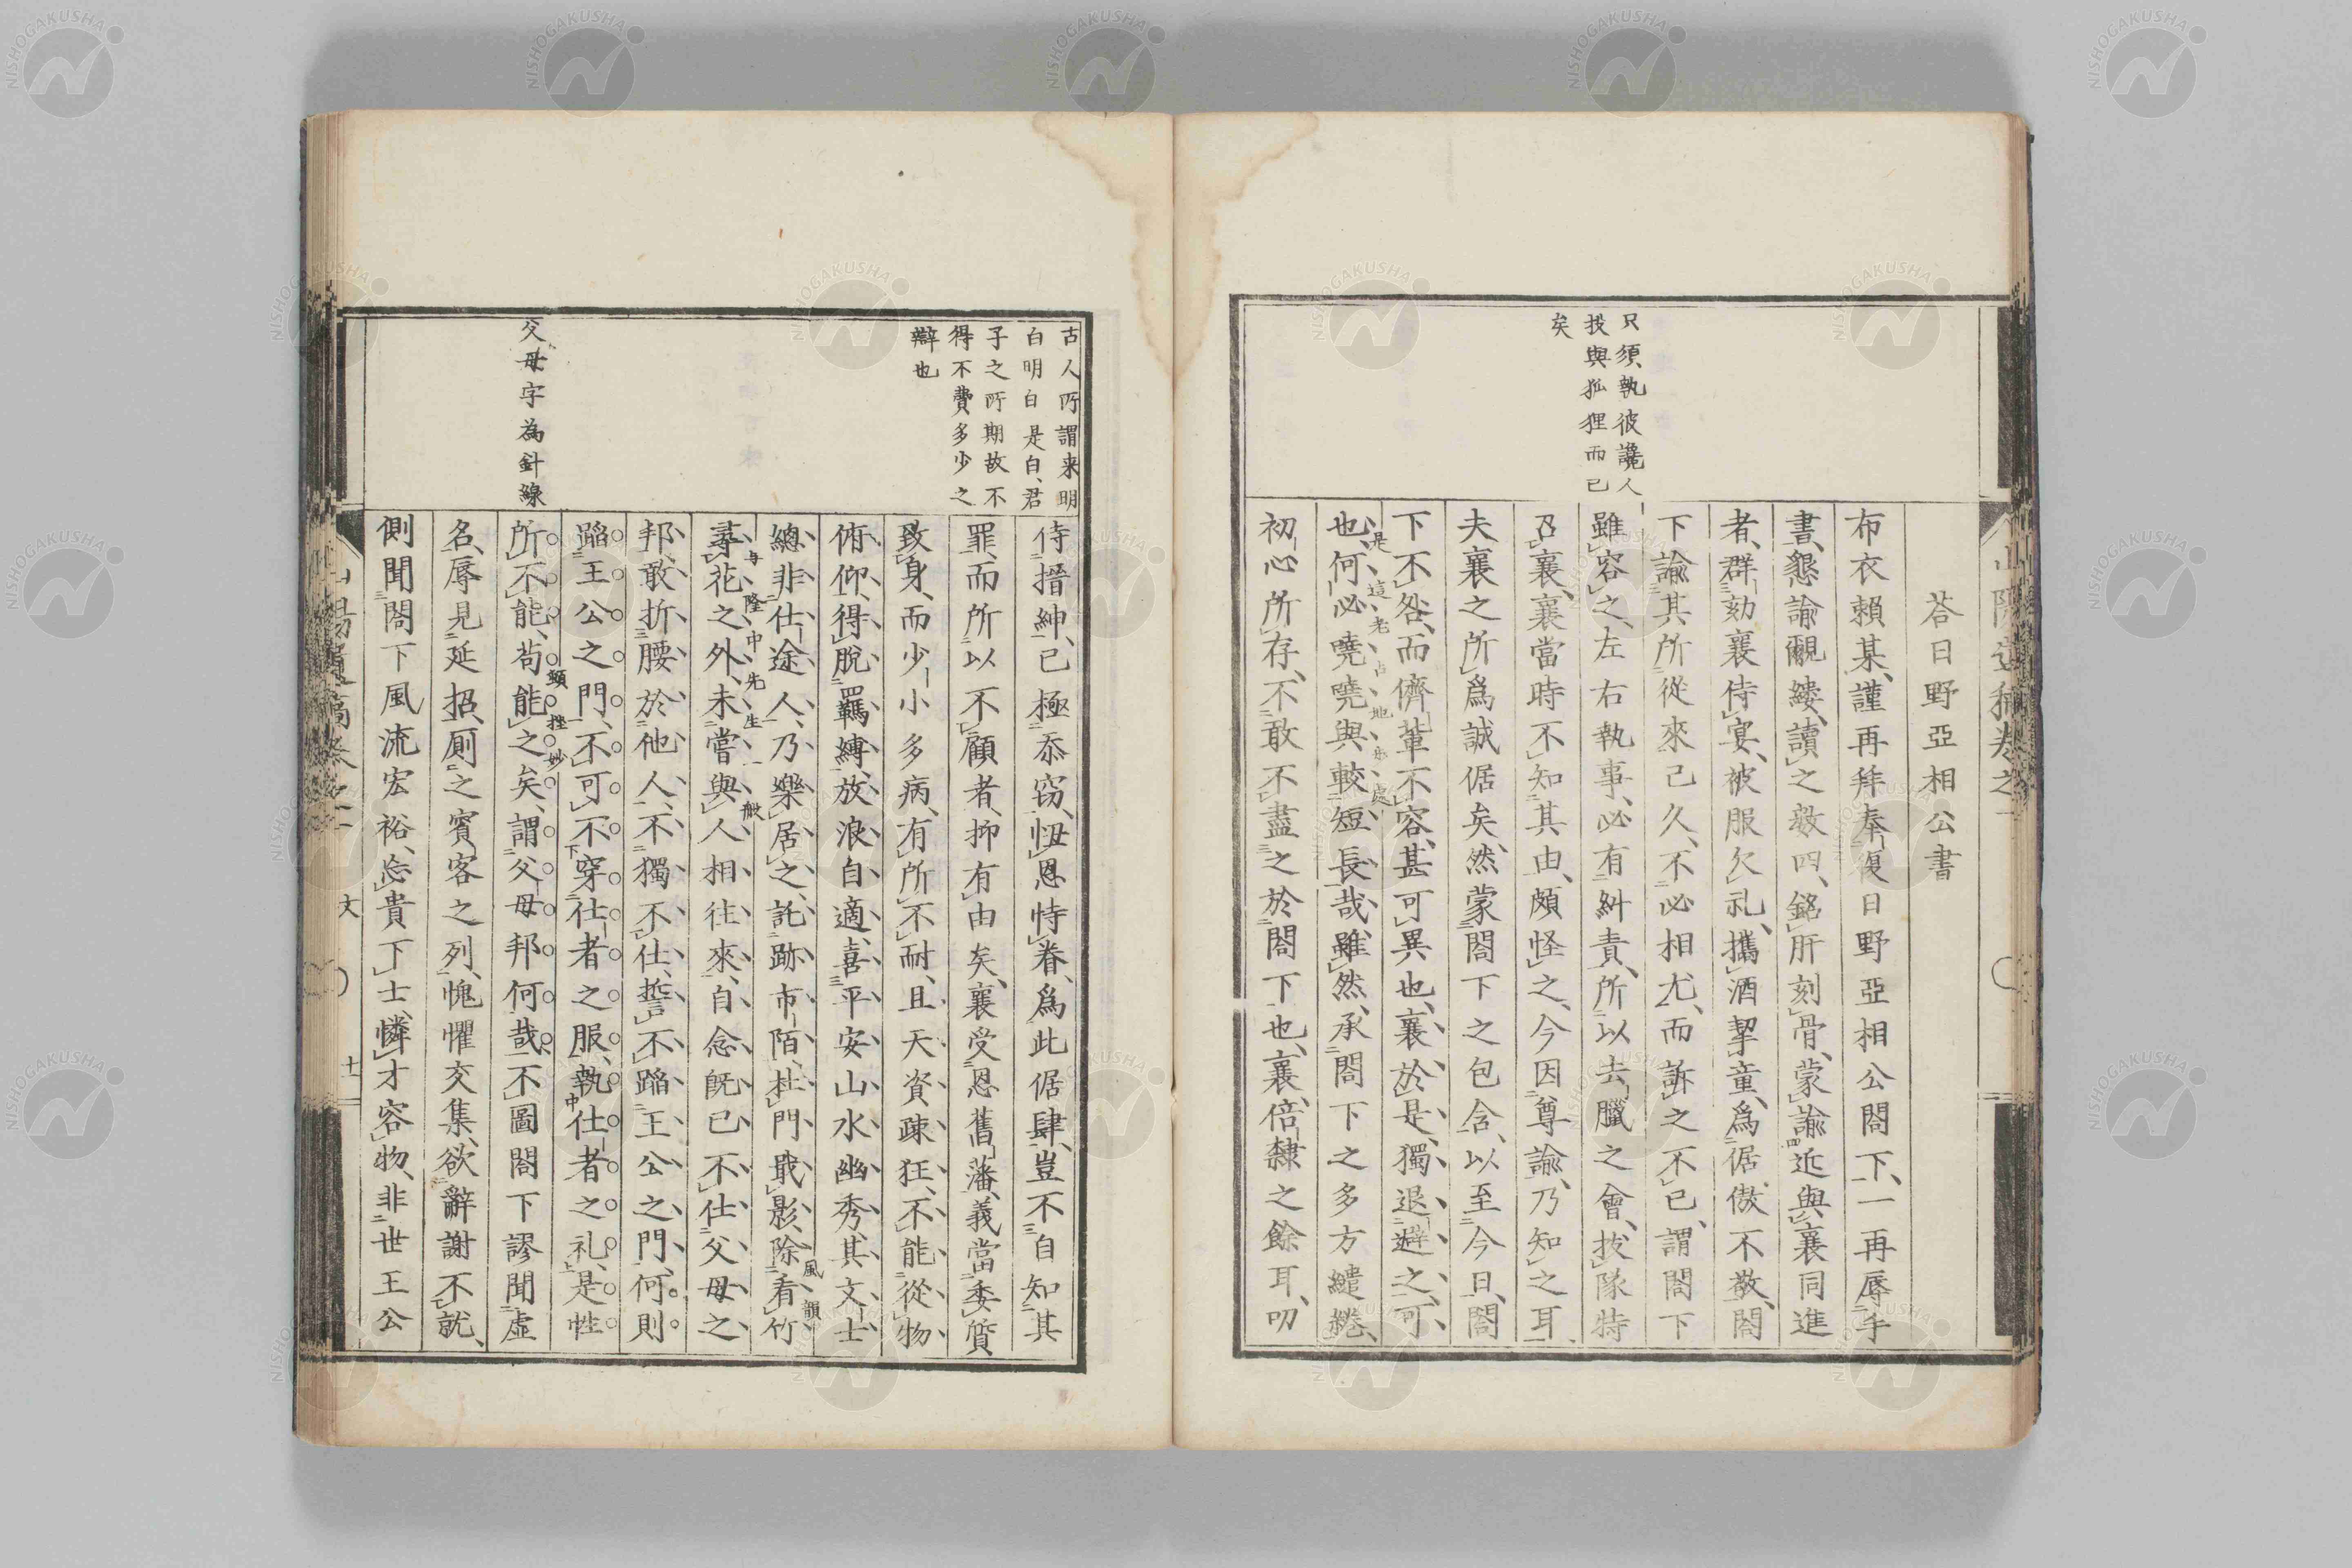 荅日野亞相公書
布衣賴某、謹再拜奉復日野亞相公閤下、一再辱手
書、懇諭覼縷、讀之數四、銘肝刻骨、蒙諭近與襄同進
者、群劾襄侍宴、被服欠礼、攜酒挈童、為倨傲不敬、閤
下諭其所從來已久、不必相尤、而訴之不已、謂閤下
雖容之、左右執事、必有糾責、所以去臘之會、拔隊特
召襄、襄當時不知其由、頗怪之、今因尊諭、乃知之耳、
夫襄之所爲誠倨矣、然蒙閤下之包含、以至今日、閤
下不咎、而儕輩不容、甚可異也、襄於是、獨退避之、可
也、何必嘵嘵與較短長哉、雖然、承閤下之多方繾綣、
初心所存、不敢不盡之於閤下也、襄、倍隸之餘耳、叨
只須執彼讒人
投與狐狸而已
矣
是這老占地步處
侍搢紳、已極忝竊、忸恩恃眷、爲此倨肆、豈不自知其
罪、而所以不顧者、抑有由矣、襄受恩舊藩、義當委質
致身、而少小多病、有所不耐、且天資疎狂、不能從物
俯仰、得脫羈縛、放浪自適、喜平安山水幽秀、其文士
總非仕途人、乃樂居之、託跡市陌、杜門戢影、除看竹
尋花之外、未嘗與人相往來、自念旣已不仕父母之
邦、敢折腰於他人、不獨不仕、誓不蹈王公之門、何則
蹈王公之門、不可不穿仕者之服、執仕者之礼、是性
所不能、苟能之矣、謂父母邦何哉、不圖閤下謬聞虛
名、辱見延招、厠之賓客之列、愧懼交集、欲辭謝不就、
側聞閤下風流宏裕、忘貴下士、憐才容物、非世王公
古人所謂来明
白明白是白、君
子之所期故不
得不費多少之
辯也
父母字為針線
風韻
与隆中先生一般
頗挫妙
文
十一